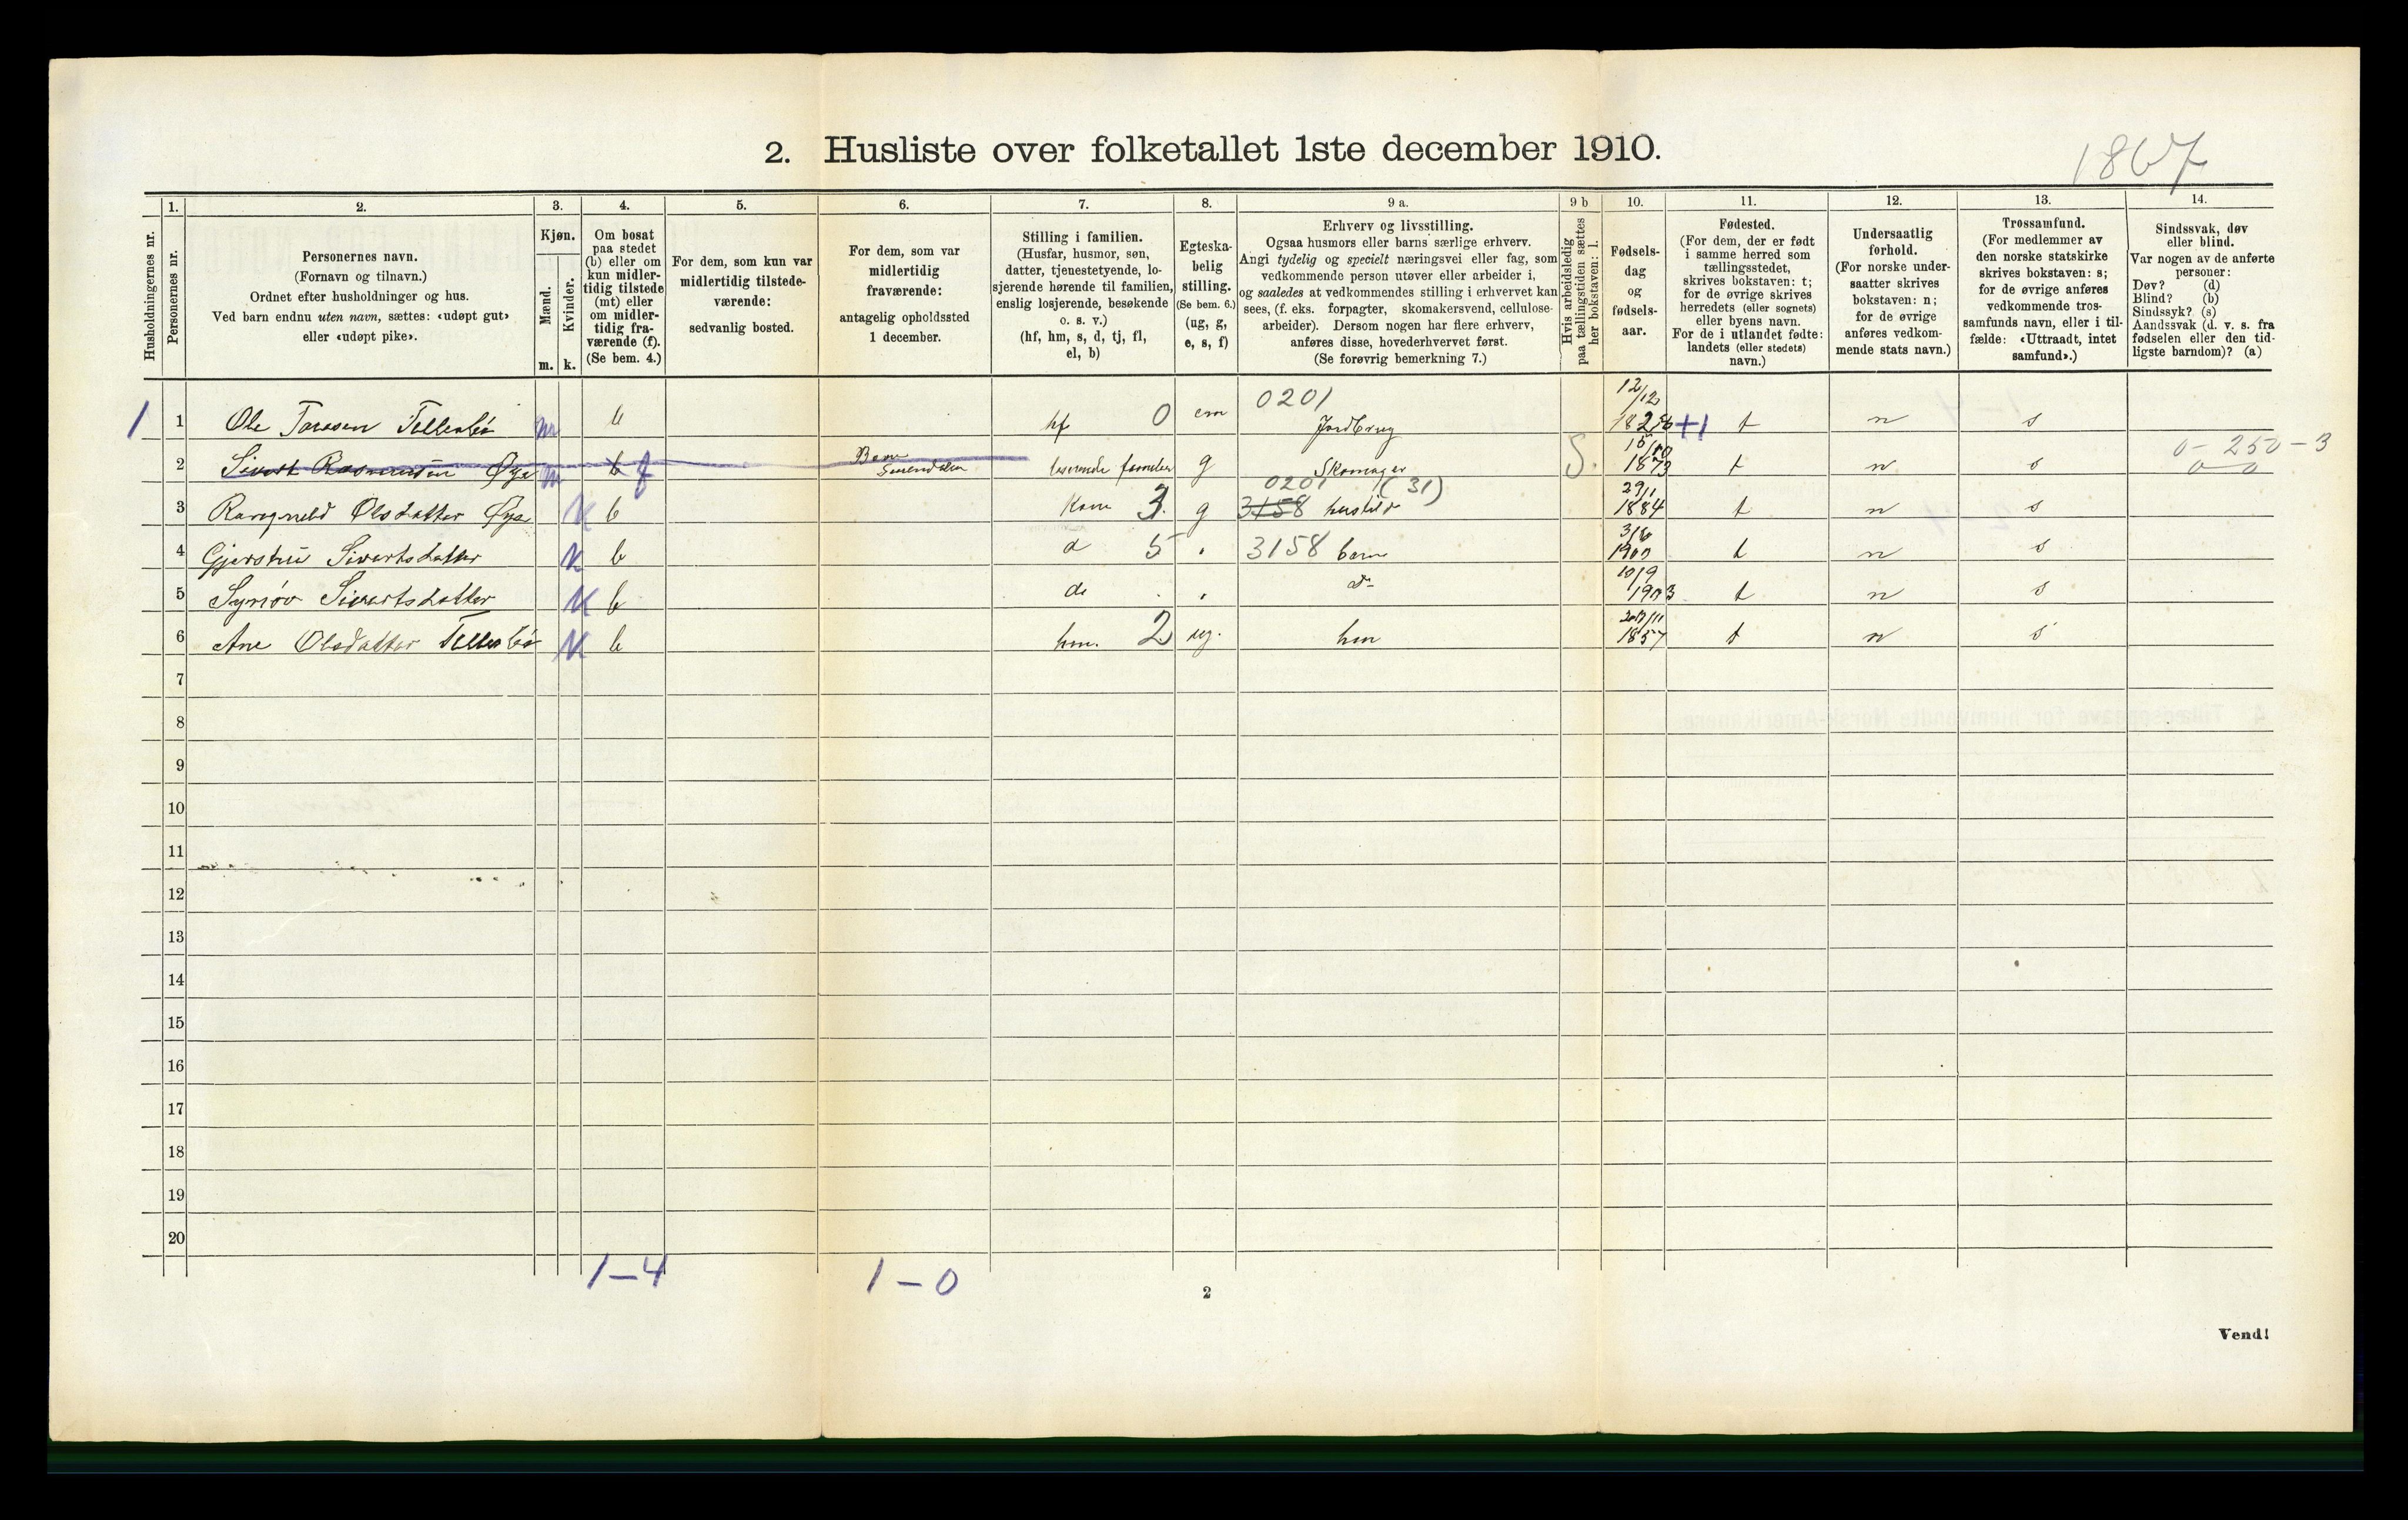 2. Husliste over folketallet 1ste december 1910.
1867
Husholdningernes nr.
1.
Personernes nr.
2.
Personernes navn.
(Fornavn og tilnavn.)
Ordnet efter husholdninger og hus.
Ved barn endnu uten navn, sættes: «udøpt gut»
eller «udøpt pike».
3.
Kjøn.
Mænd.
Kvinder.
m. k.
4.
Om bosat
paa stedet
(b) eller om
kun midler-
tidig tilstede
(mt) eller
om midler-
tidig fra-
værende (f).
(Se bem. 4.)
5.
For dem, som kun var
midlertidig tilstede-
værende:
sedvanlig bosted.
6.
For dem, som var
midlertidig
fraværende:
antagelig opholdssted
1 december.
7.
Stilling i familien.
(Husfar, husmor, søn,
datter, tjenestetyende, lo-
sjerende hørende til familien,
enslig losjerende, besøkende
o. s. v.)
(hf, hm, s, d, tj, fl,
el, b)
8.
Egteska-
belig
stilling.
(Se bem. 6.)
(ug, g,
e, s, f)
9 a.
Erhverv og livsstilling.
Ogsaa husmors eller barns særlige erhverv.
Angi tydelig og specielt næringsvei eller fag, som
vedkommende person utøver eller arbeider i,
og saaledes at vedkommendes stilling i erhvervet kan
sees, (f. eks. forpagter, skomakersvend, cellulose-
arbeider). Dersom nogen har flere erhverv,
anføres disse, hovederhvervet først.
(Se forøvrig bemerkning 7.)
9 b
Hvis arbeidsledig
paa tællingstiden sættes
her bokstaven: l.
10.
Fødsels-
dag
og
fødsels-
aar.
11.
Fødested.
(For dem, der er født
i samme herred som
tællingsstedet,
skrives bokstaven: t;
for de øvrige skrives
herredets (eller sognets)
eller byens navn.
For de i utlandet fødte:
landets (eller stedets)
navn.)
12.
Undersaatlig
forhold.
(For norske under-
saatter skrives
bokstaven: n;
for de øvrige
anføres vedkom-
mende stats navn.)
13.
Trossamfund.
(For medlemmer av
den norske statskirke
skrives bokstaven: s;
for de øvrige anføres
vedkommende tros-
samfunds navn, eller i til-
fælde: «Uttraadt, intet
samfund».)
14.
Sindssvak, døv
eller blind.
Var nogen av de anførte
personer:
Døv? (d)
Blind? (b)
Sindssyk? (s)
Aandssvak (d. v. s. fra
fødselen eller den tid-
ligste barndom)? (a)
1 1 Ole m b hf 0 em 0201 Jordbrug 12/12 +1 t n s
2 Sivert Rasmussen Øye m b f g Skomager S. 1873 t n s 0-250-3
0-0
3 Olsdatter Øye K b Kone 3. g 0201 (31) 3158 29/1 1884 t n s
4 Sivertsdatter K b d 5 3158 barn 3/6 1900 t n s
5 Sivertsdatter K b do 10/9 1903 t n s
6 Ane Olsdatter K b hm. 2 ug. hm 1857 t n s
7
8
9
10
11
12
13
14
15
16
17
18
19
20
1-4 1-0
2
Vend!